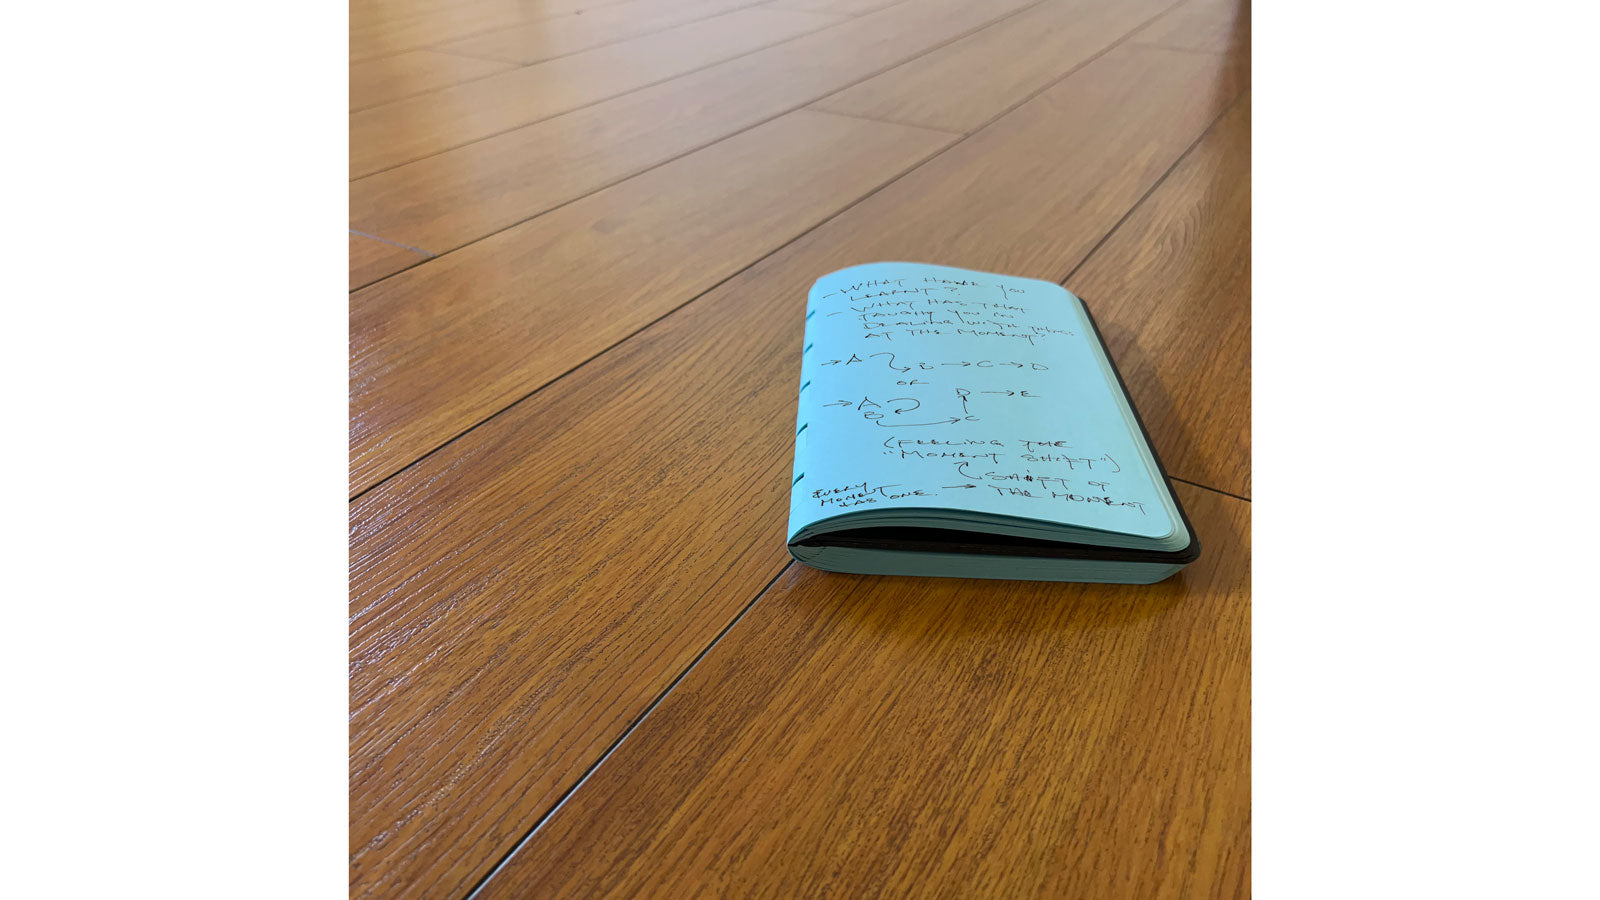 - WHAT HAVE YOU
LEARNT?
- WHAT HAS THAT
TAUGHT YOU IN
DEALING WITH THINGS
AT THE MOMENT?
→ A → B → C → D
OR
D → E
→ A
B → C
(FEELING THE
"MOMENT SHIFT")
↪ SHIFT OF
EVERY → THE MOMENT
MOMENT
HAS ONE.